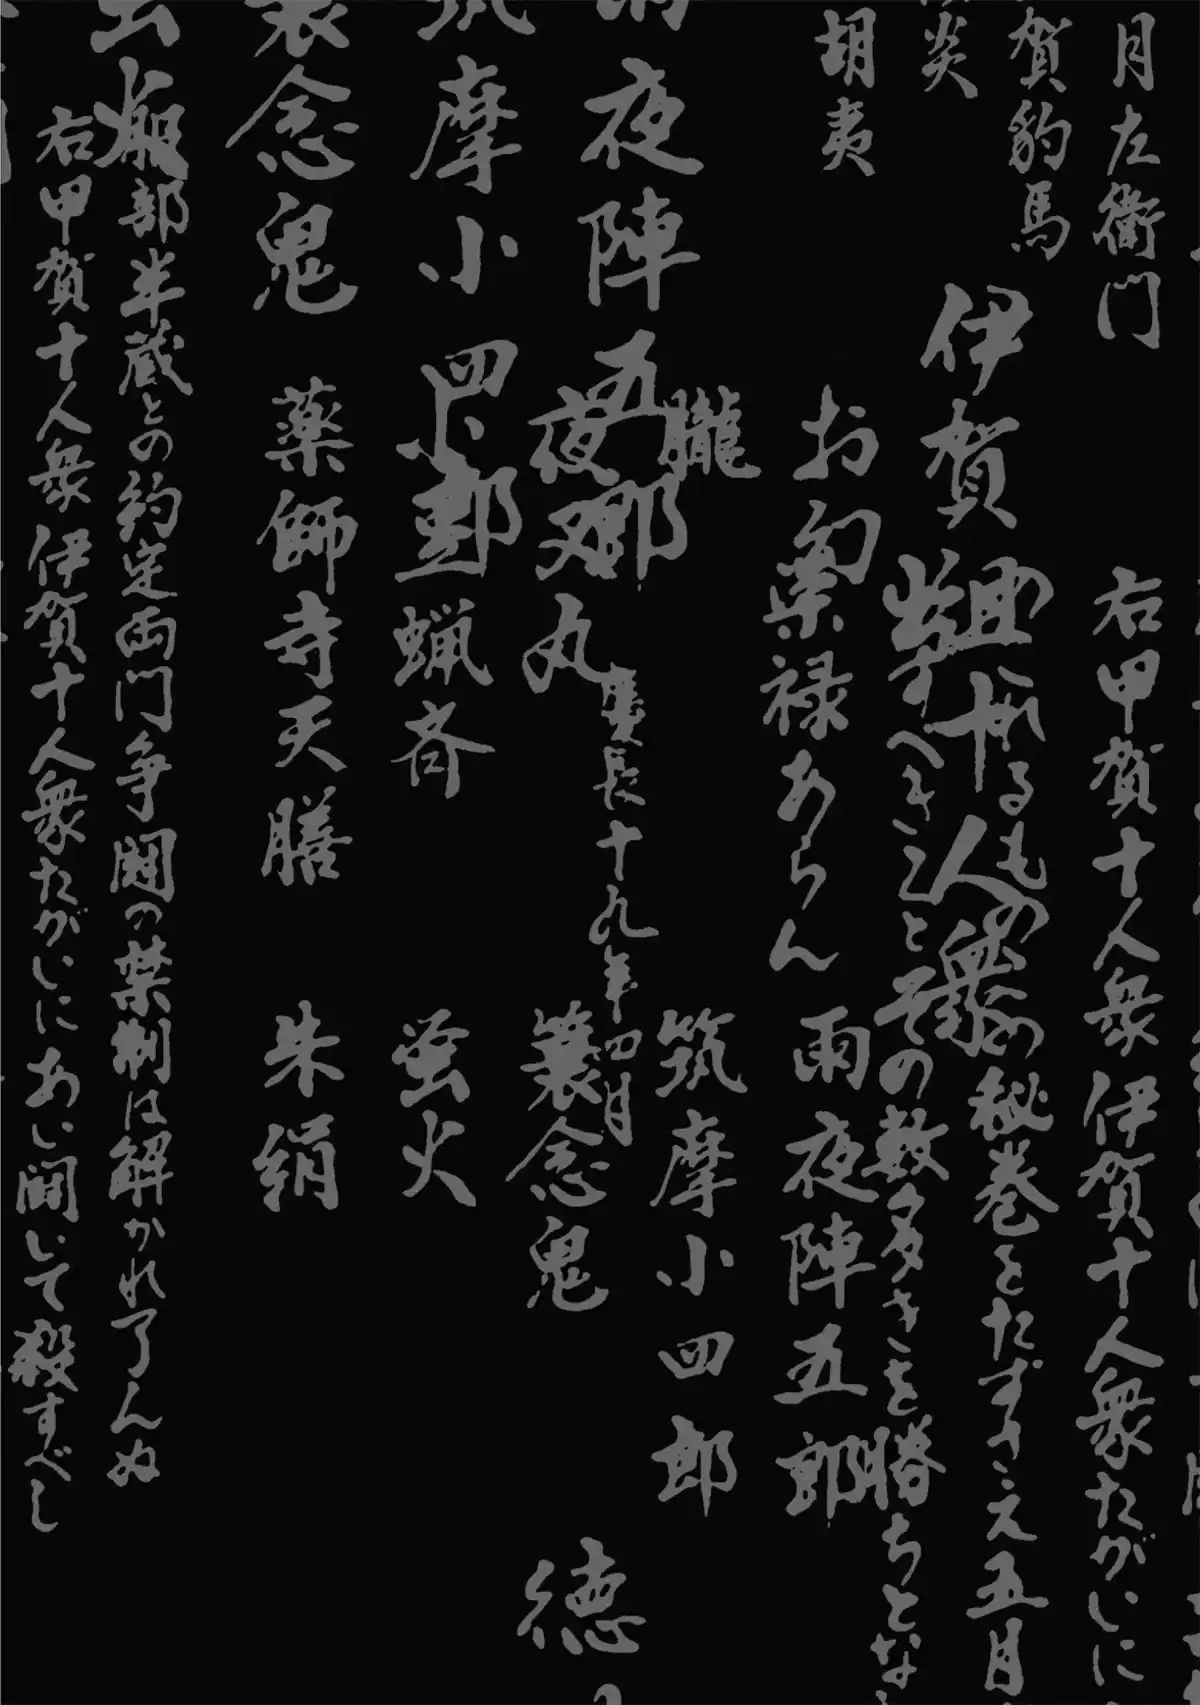 月左衛門
賀豹馬
炎
胡夷
右甲賀十人衆伊賀十人衆たがいに
伊賀
十人衆
の秘巻をたずさえ五月
すべきことその数多きを勝ちとな
お胡夷
禄あらん
雨夜陣五郎
夜陣五郎
朧
筑摩小四郎
慶長十九年四月
夜叉丸
蓑念鬼
徳
摩小四郎
小豆蝋斉
蛍火
念鬼
薬師寺天膳
朱絹
服部半蔵との約定両門争闘の禁制は解かれ了んぬ
右甲賀十人衆伊賀十人衆たがいにあい闘いて殺すべし